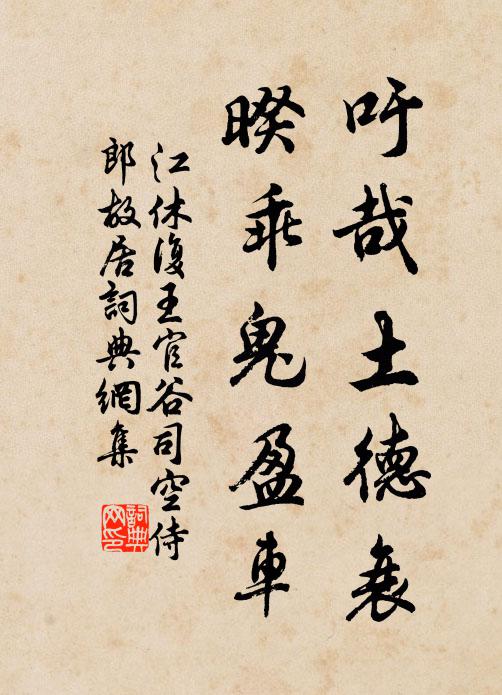 吁哉土德衰
睽乖鬼盈車
江休復王官谷司空侍
郎故居詞典網集
詞典
网印